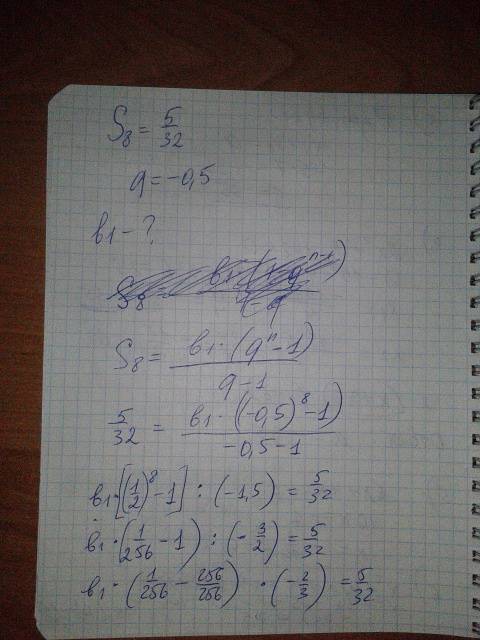 S₈ = 5/32
q = -0,5
b1 - ?
S₈ = b1·(qⁿ-1)/(q-1)
5/32 = b1·((-0,5)⁸-1)/(-0,5-1)
b1·[(1/2)⁸-1] : (-1,5) = 5/32
b1·(1/256-1) : (-3/2) = 5/32
b1·(1/256 - 256/256) · (-2/3) = 5/32